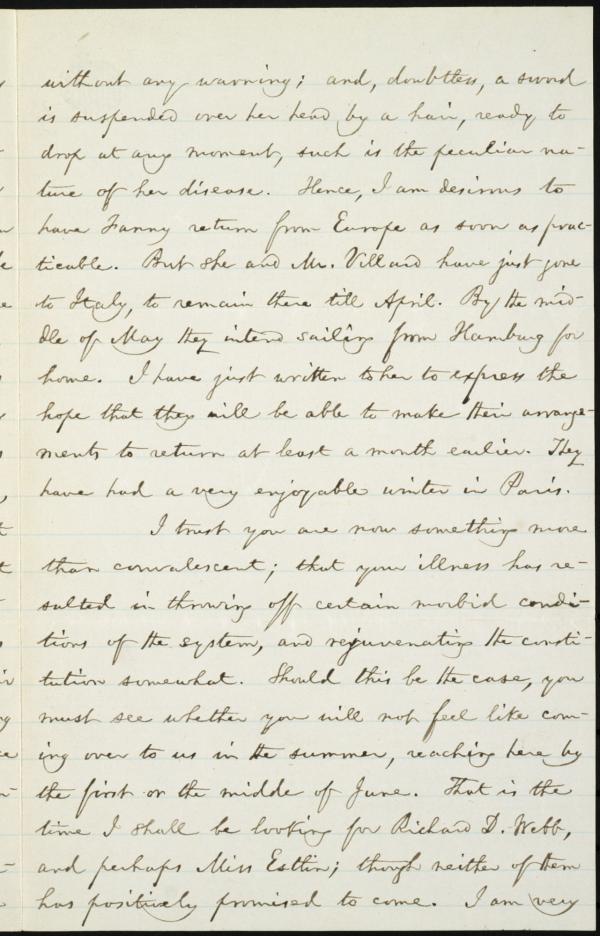 without any warning; and, doubtless, a sword
is suspended over her head by a hair, ready to
drop at any moment, such is the peculiar na-
ture of her disease. Hence, I am desirous to
have Fanny return from Europe as soon as prac-
ticable. But she and Mr. Villard have just gone
to Italy, to remain there till April. By the mid-
dle of May they intend sailing from Hamburg for
home. I have just written to her to express the
hope that they will be able to make their arrange-
ments to return at least a month earlier. They
have had a very enjoyable winter in Paris.
I trust you are now something more
than convalescent; that your illness has re-
sulted in throwing off certain morbid condi-
tions of the system, and rejuvenating the consti-
tution somewhat. Should this be the case, you
must see whether you will not feel like com-
ing over to us in the summer, reaching here by
the first or the middle of June. That is the
time I shall be looking for Richard D. Webb,
and perhaps Miss Estlin; though neither of them
has positively promised to come. I am very